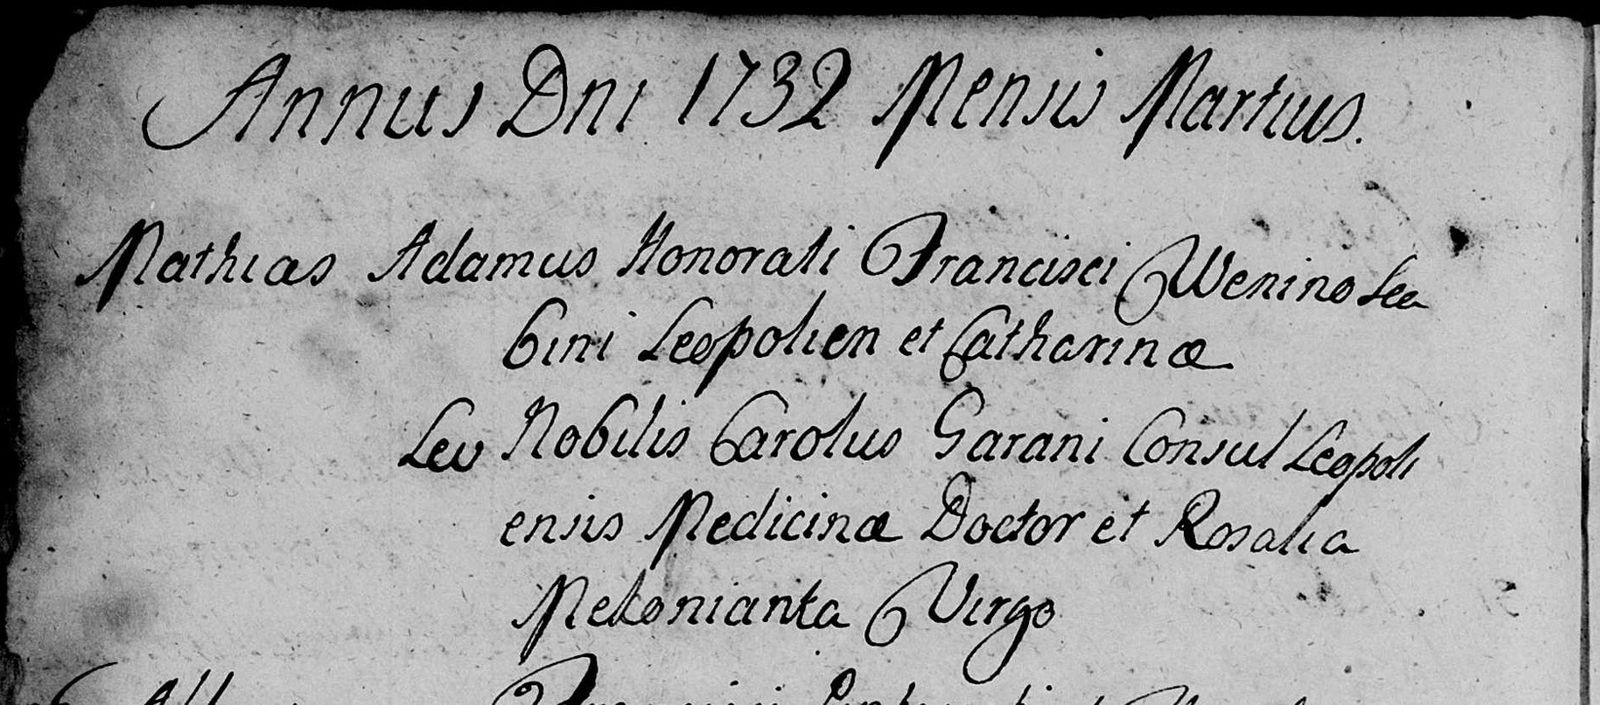 Annus Dni 1732 Mensis Martius.
Mathias Adamus Honorati Francisci Wenino Sca
bini Leopolien et Catharinæ
Lev Nobilis Carolus Garani Consul Leopoli
ensis Medicinæ Doctor et Rosalia
Mekonianka Virgo